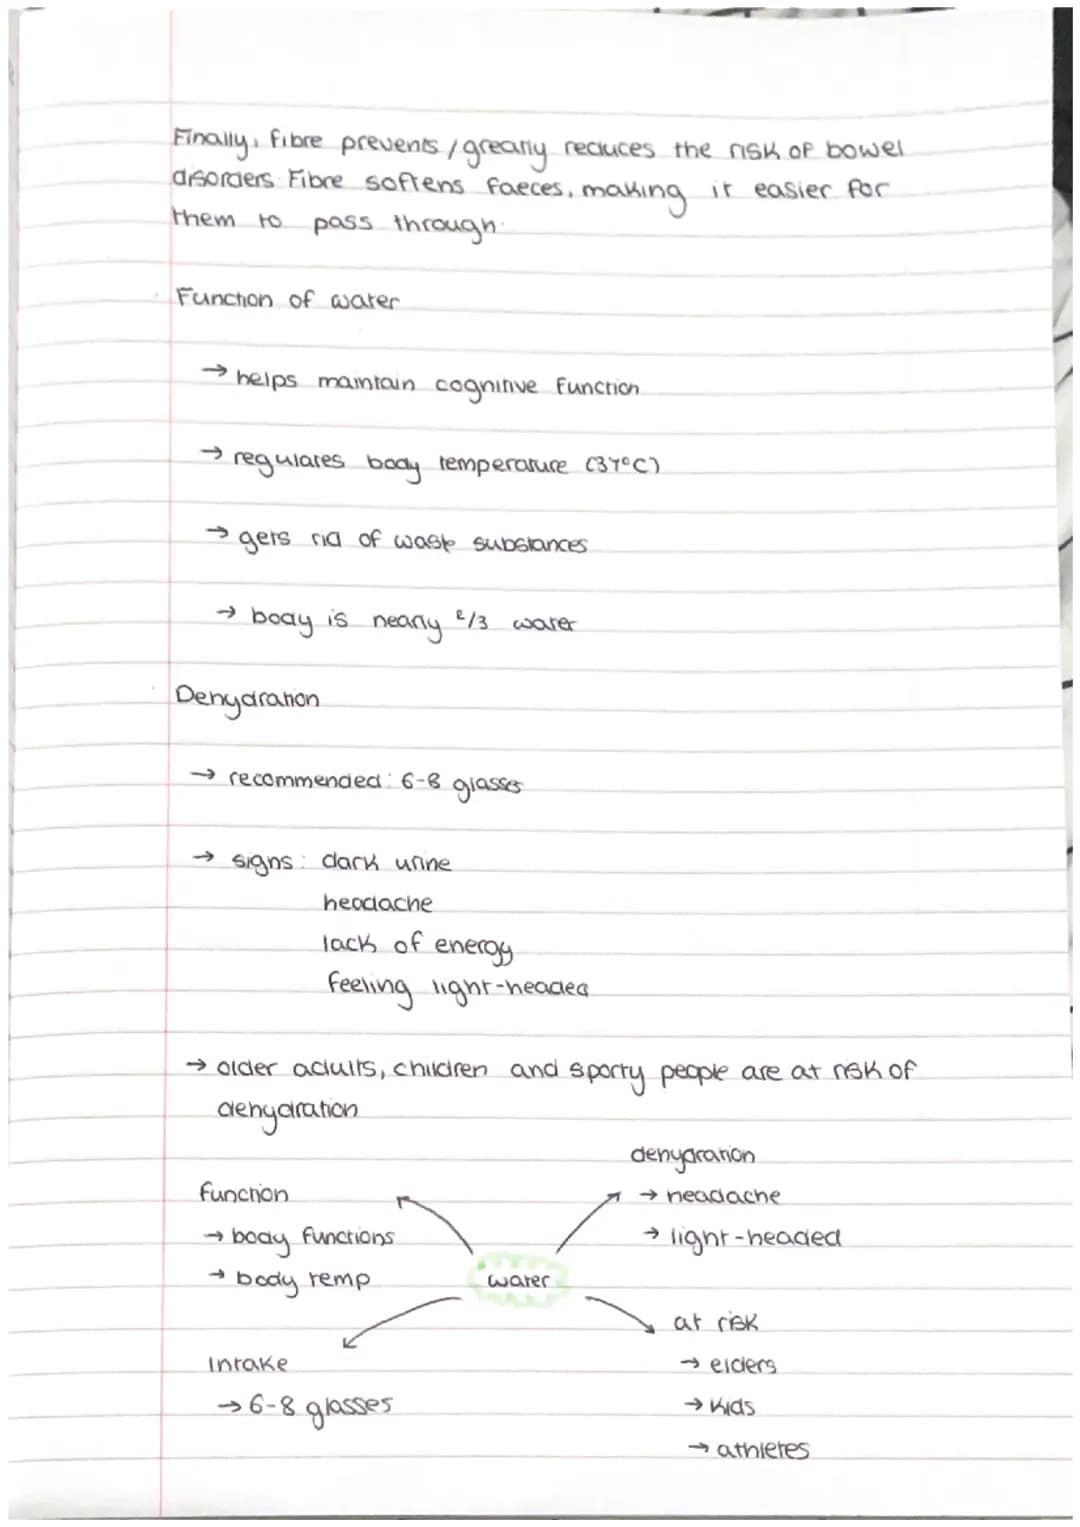 Finally, fibre prevents / greatly reduces the risk of bowel
disorders. Fibre softens faeces, making it easier for
them to pass through.
Function of water
→ helps maintain cognitive function
→ regulates body temperature (37°C)
→ gets rid of waste substances
→ body is nearly 2/3 water
Dehydration
→ recommended: 6-8 glasses
→ signs: dark urine
headache
lack of energy
feeling light-headed
→ older adults, children and sporty people are at risk of
dehydration
dehydration
→ headache
→ light-headed
function
→ body functions
→ body temp
water
at risk
→ elders
→ kids
→ athletes
Intake
→ 6-8 glasses